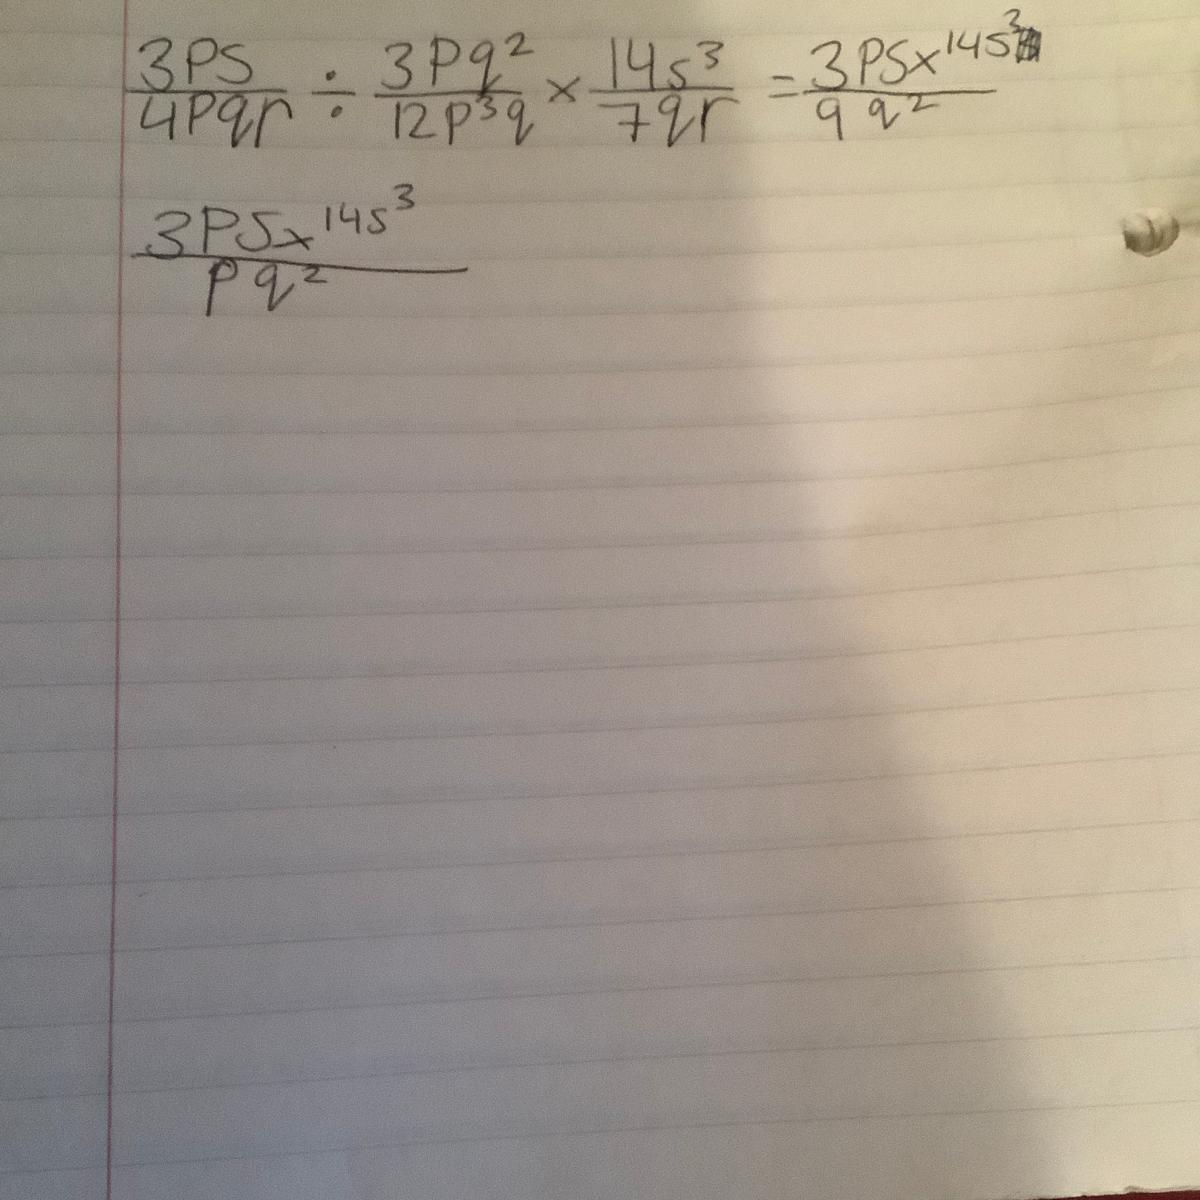 3PS/4Pqr ÷ 3Pq²/12P³q × 14s³/7qr = 3PS×14s³/9q²
3PS×14s³/Pq²